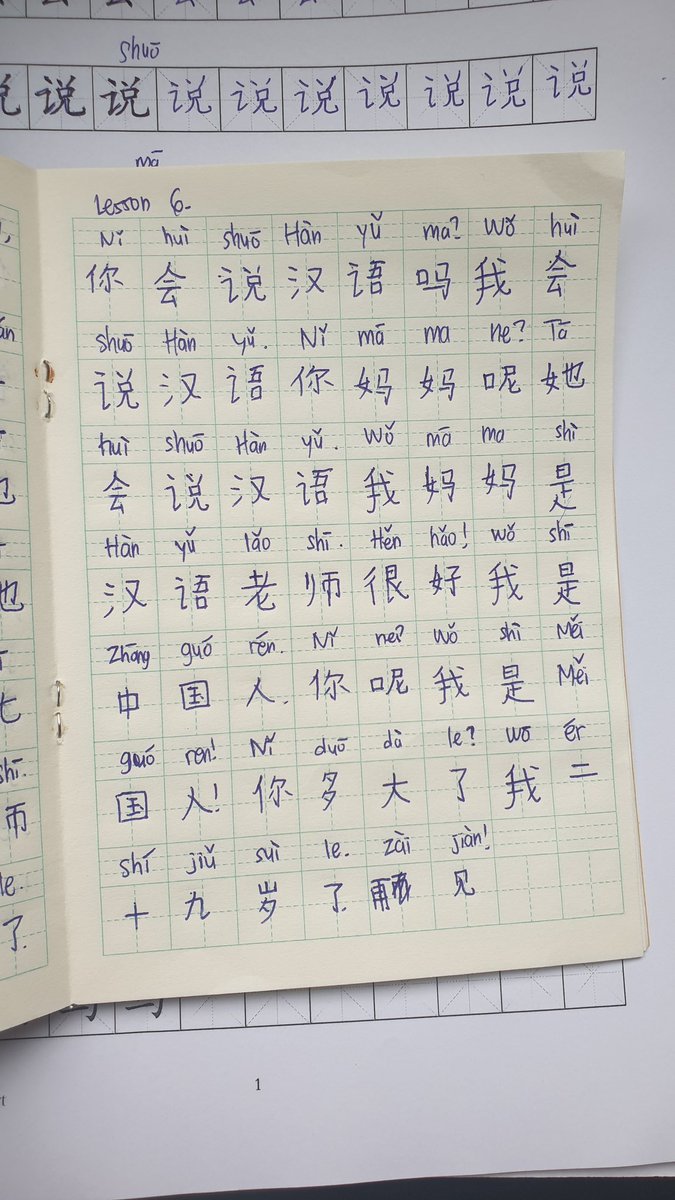 shuō
说 说 说 说 说 说 说 说 说
mā
Lesson 6.
Nǐ huì shuō Hàn yǔ ma? Wǒ huì
你 会 说 汉 语 吗 我 会
shuō Hàn yǔ. Nǐ mā ma ne? Tā
说 汉 语 你 妈 妈 呢 她
huì shuō Hàn yǔ. Wǒ mā ma shì
会 说 汉 语 我 妈 妈 是
Hàn yǔ lǎo shī. Hěn hǎo! wǒ shī
汉 语 老 师 很 好 我 是
Zhōng guó rén. Nǐ ne? Wǒ shì Měi
中 国 人. 你 呢 我 是 Měi
guó ren! Nǐ duō dà le? wo ér
国 人! 你 多 大 了 我 二
shí jiǔ suì le. zài jiàn!
十 九 岁 了. 见
1